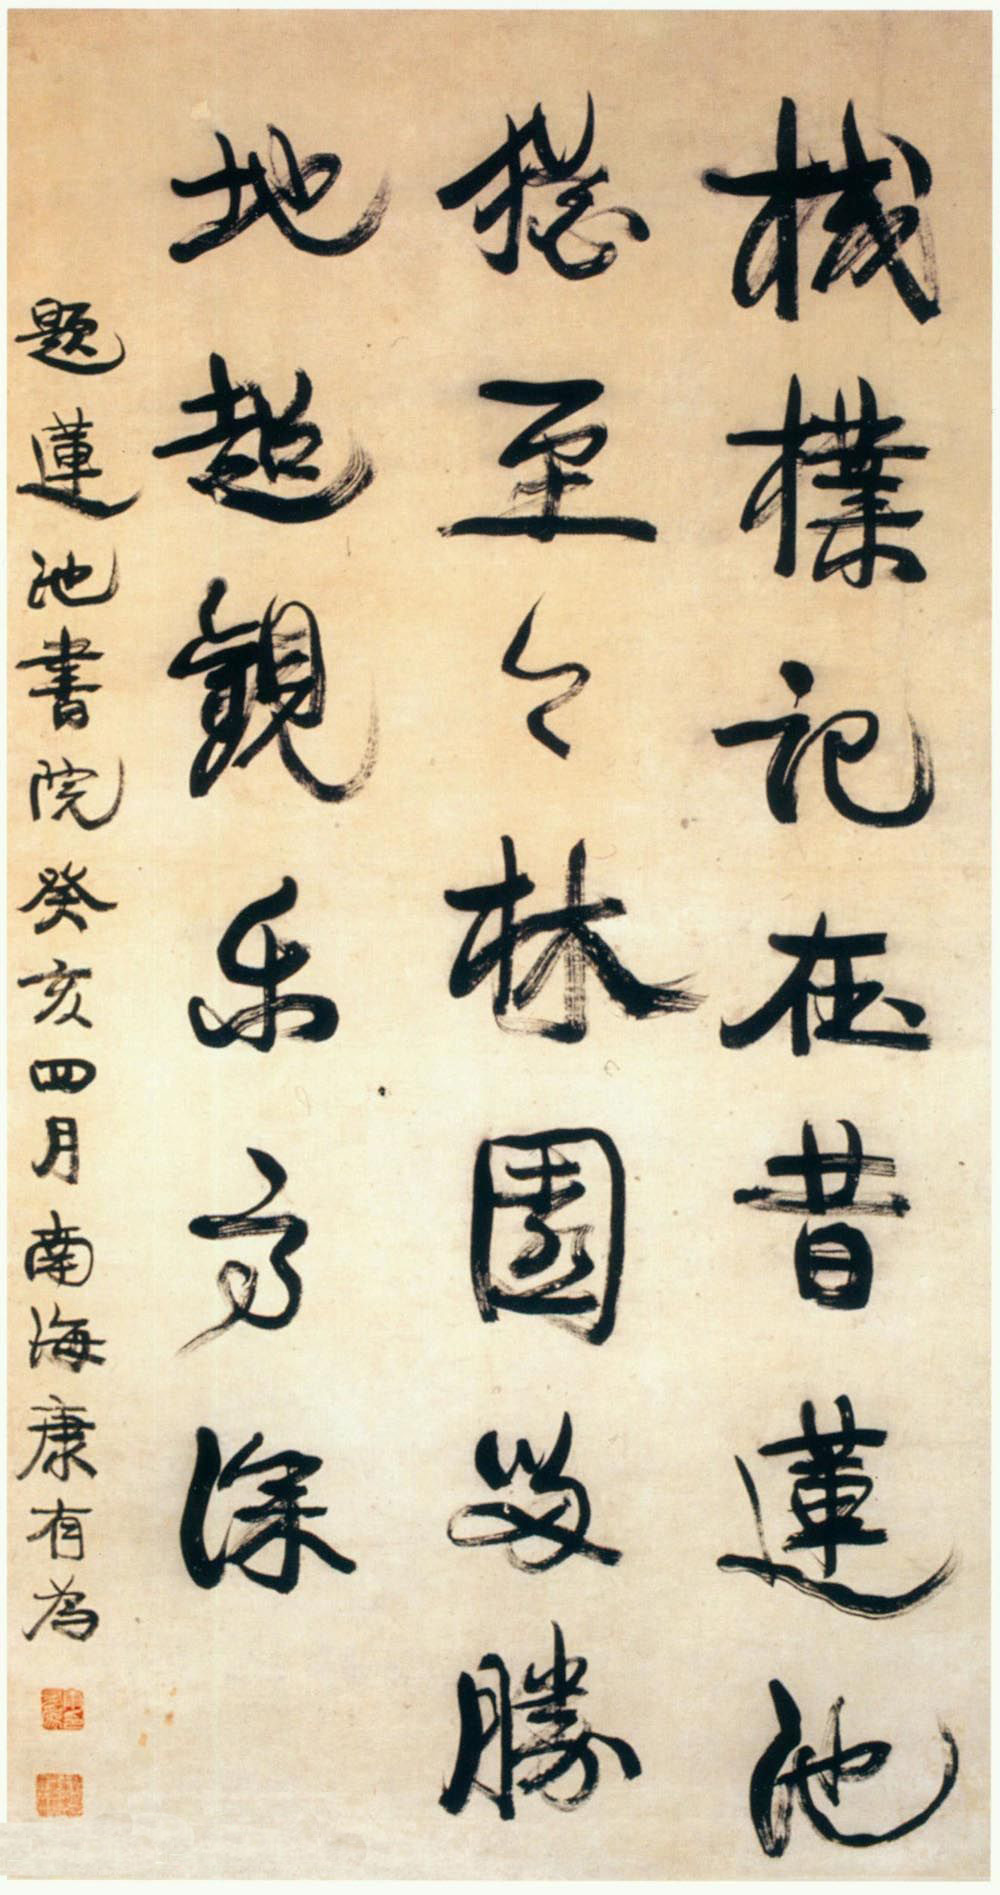 棫樸記在昔蓮池
猶至今林園留勝
地超觀樂高深
題蓮池書院癸亥四月南海康有為